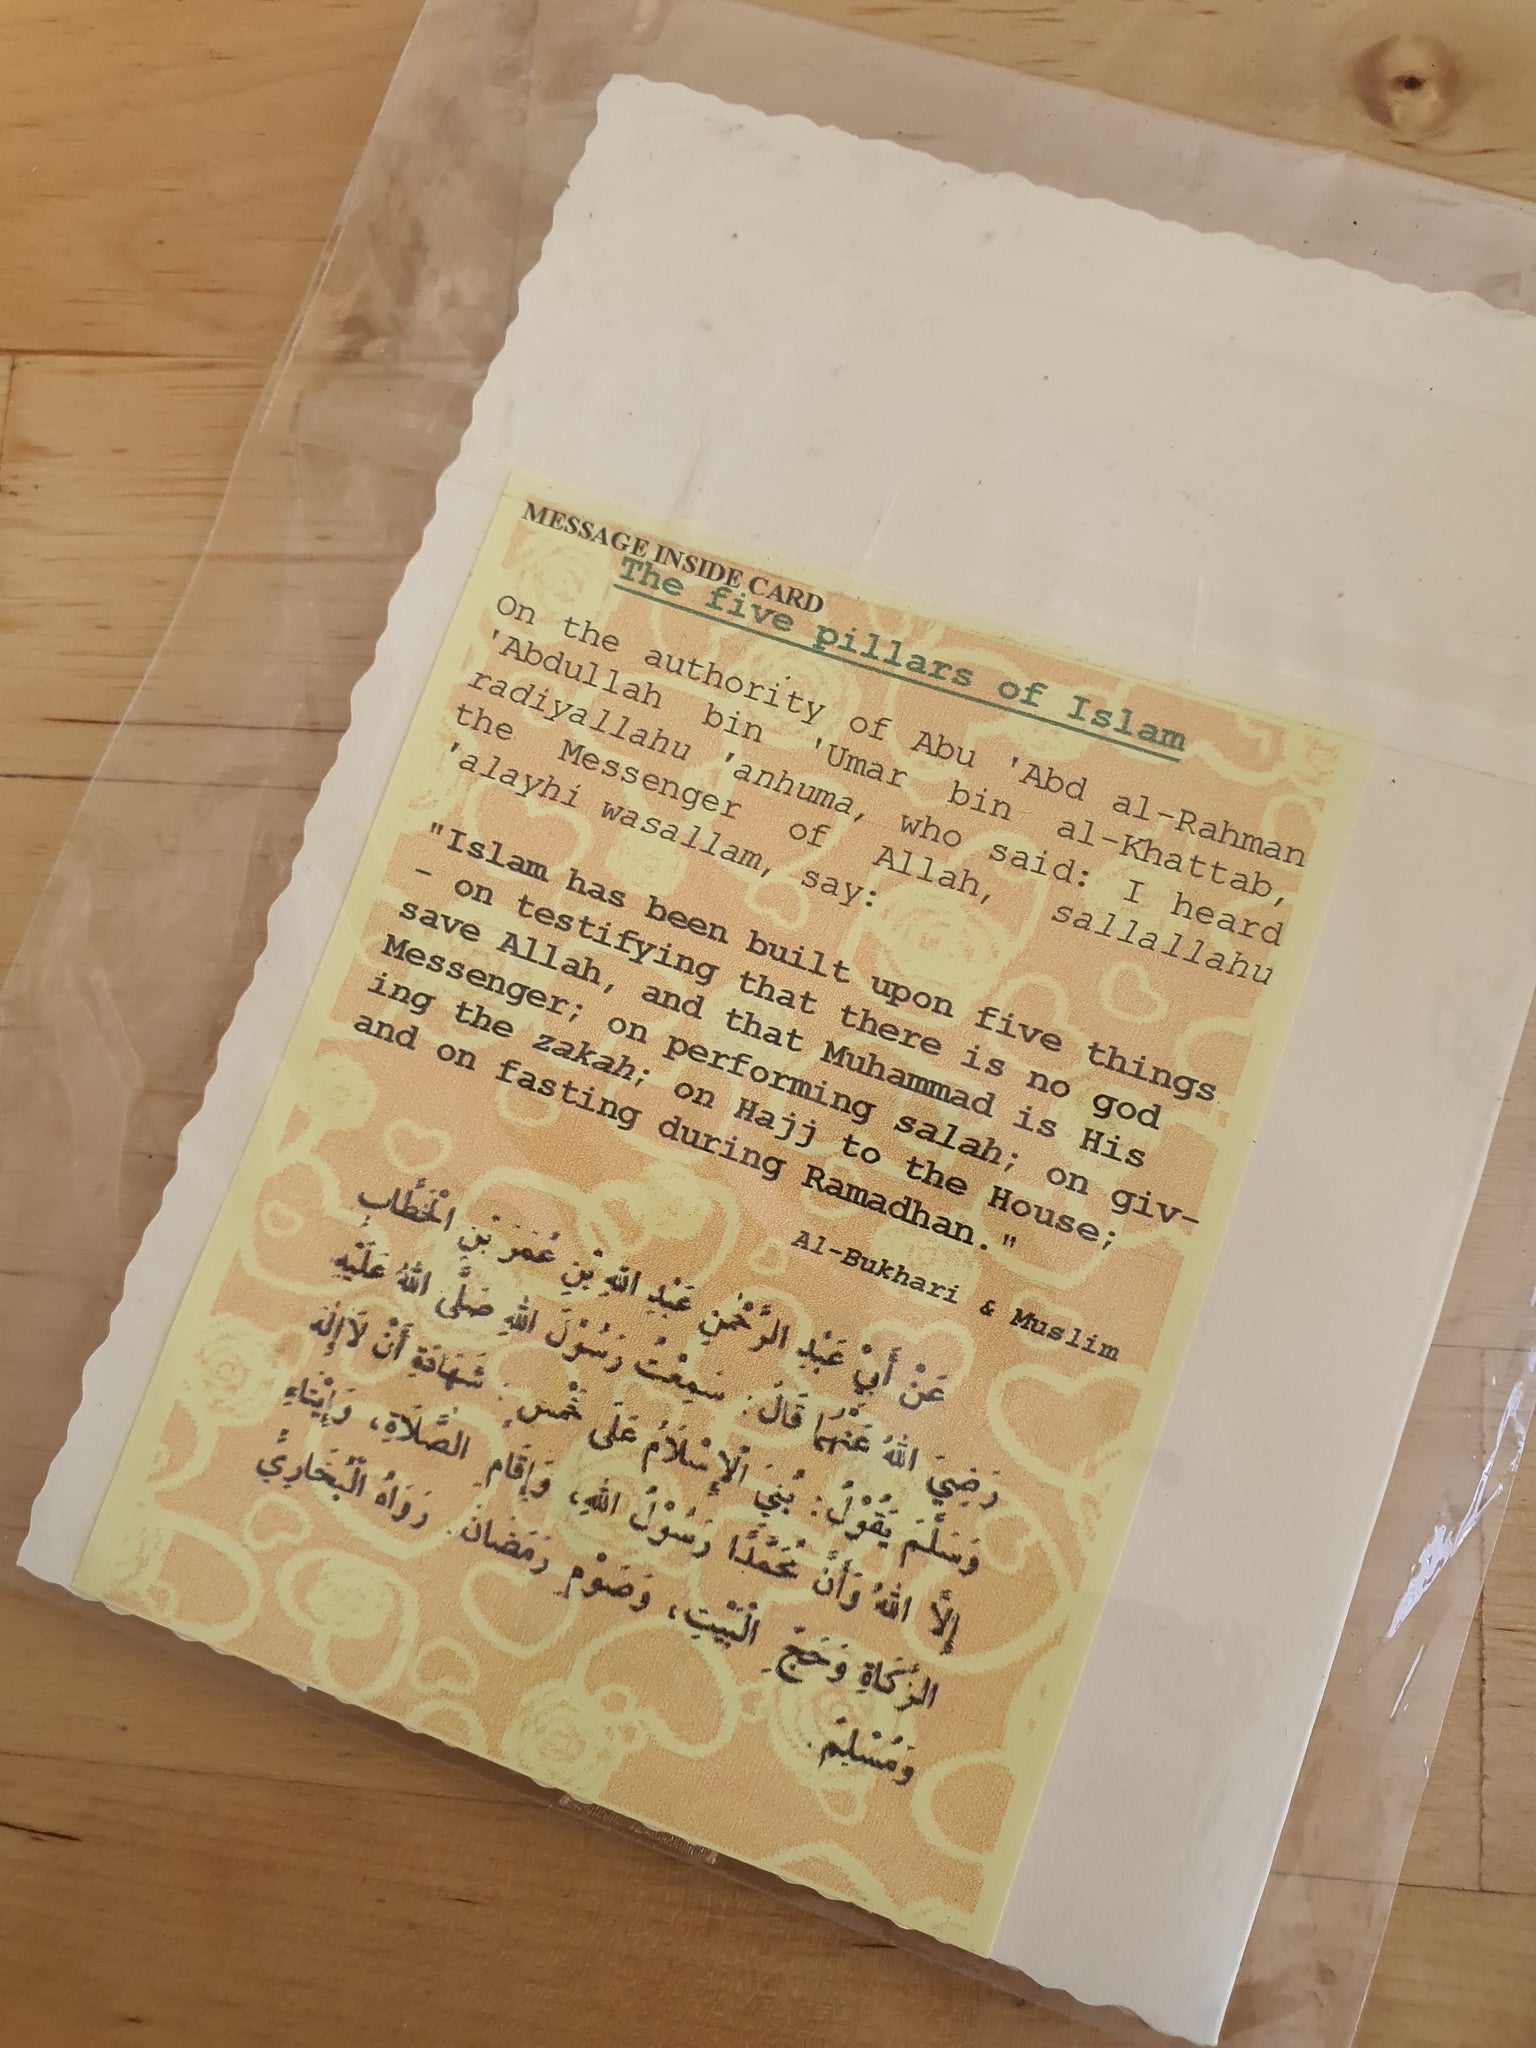 MESSAGE INSIDE CARD
The five pillars of Islam
On the authority of Abu 'Abd al-Rahman
'Abdullah bin 'Umar bin al-Khattab,
radiyallahu 'anhuma, who said: I heard
the Messenger of Allah, sallallahu
'alayhi wasallam, say:
"Islam has been built upon five things
- on testifying that there is no god
save Allah, and that Muhammad is His
Messenger; on performing salah; on giv-
ing the zakah; on Hajj to the House;
and on fasting during Ramadhan."
Al-Bukhari & Muslim
عَنْ أَبِيْ عَبْدِ الرَّحْمٰنِ عَبْدِ اللهِ بْنِ عُمَرَ بْنِ الْخَطَّابِ
رَضِيَ اللهُ عَنْهُمَا قَالَ: سَمِعْتُ رَسُوْلَ اللهِ صَلَّى اللهُ عَلَيْهِ
وَسَلَّمَ يَقُوْلُ: بُنِيَ الْإِسْلَامُ عَلَى خَمْسٍ: شَهَادَةِ أَنْ لَا إِلٰهَ
إِلَّا اللهُ وَأَنَّ مُحَمَّدًا رَسُوْلُ اللهِ، وَإِقَامِ الصَّلَاةِ، وَإِيْتَاءِ
الزَّكَاةِ وَحَجِّ الْبَيْتِ، وَصَوْمِ رَمَضَانَ. رَوَاهُ الْبُخَارِيُّ
وَمُسْلِمٌ.